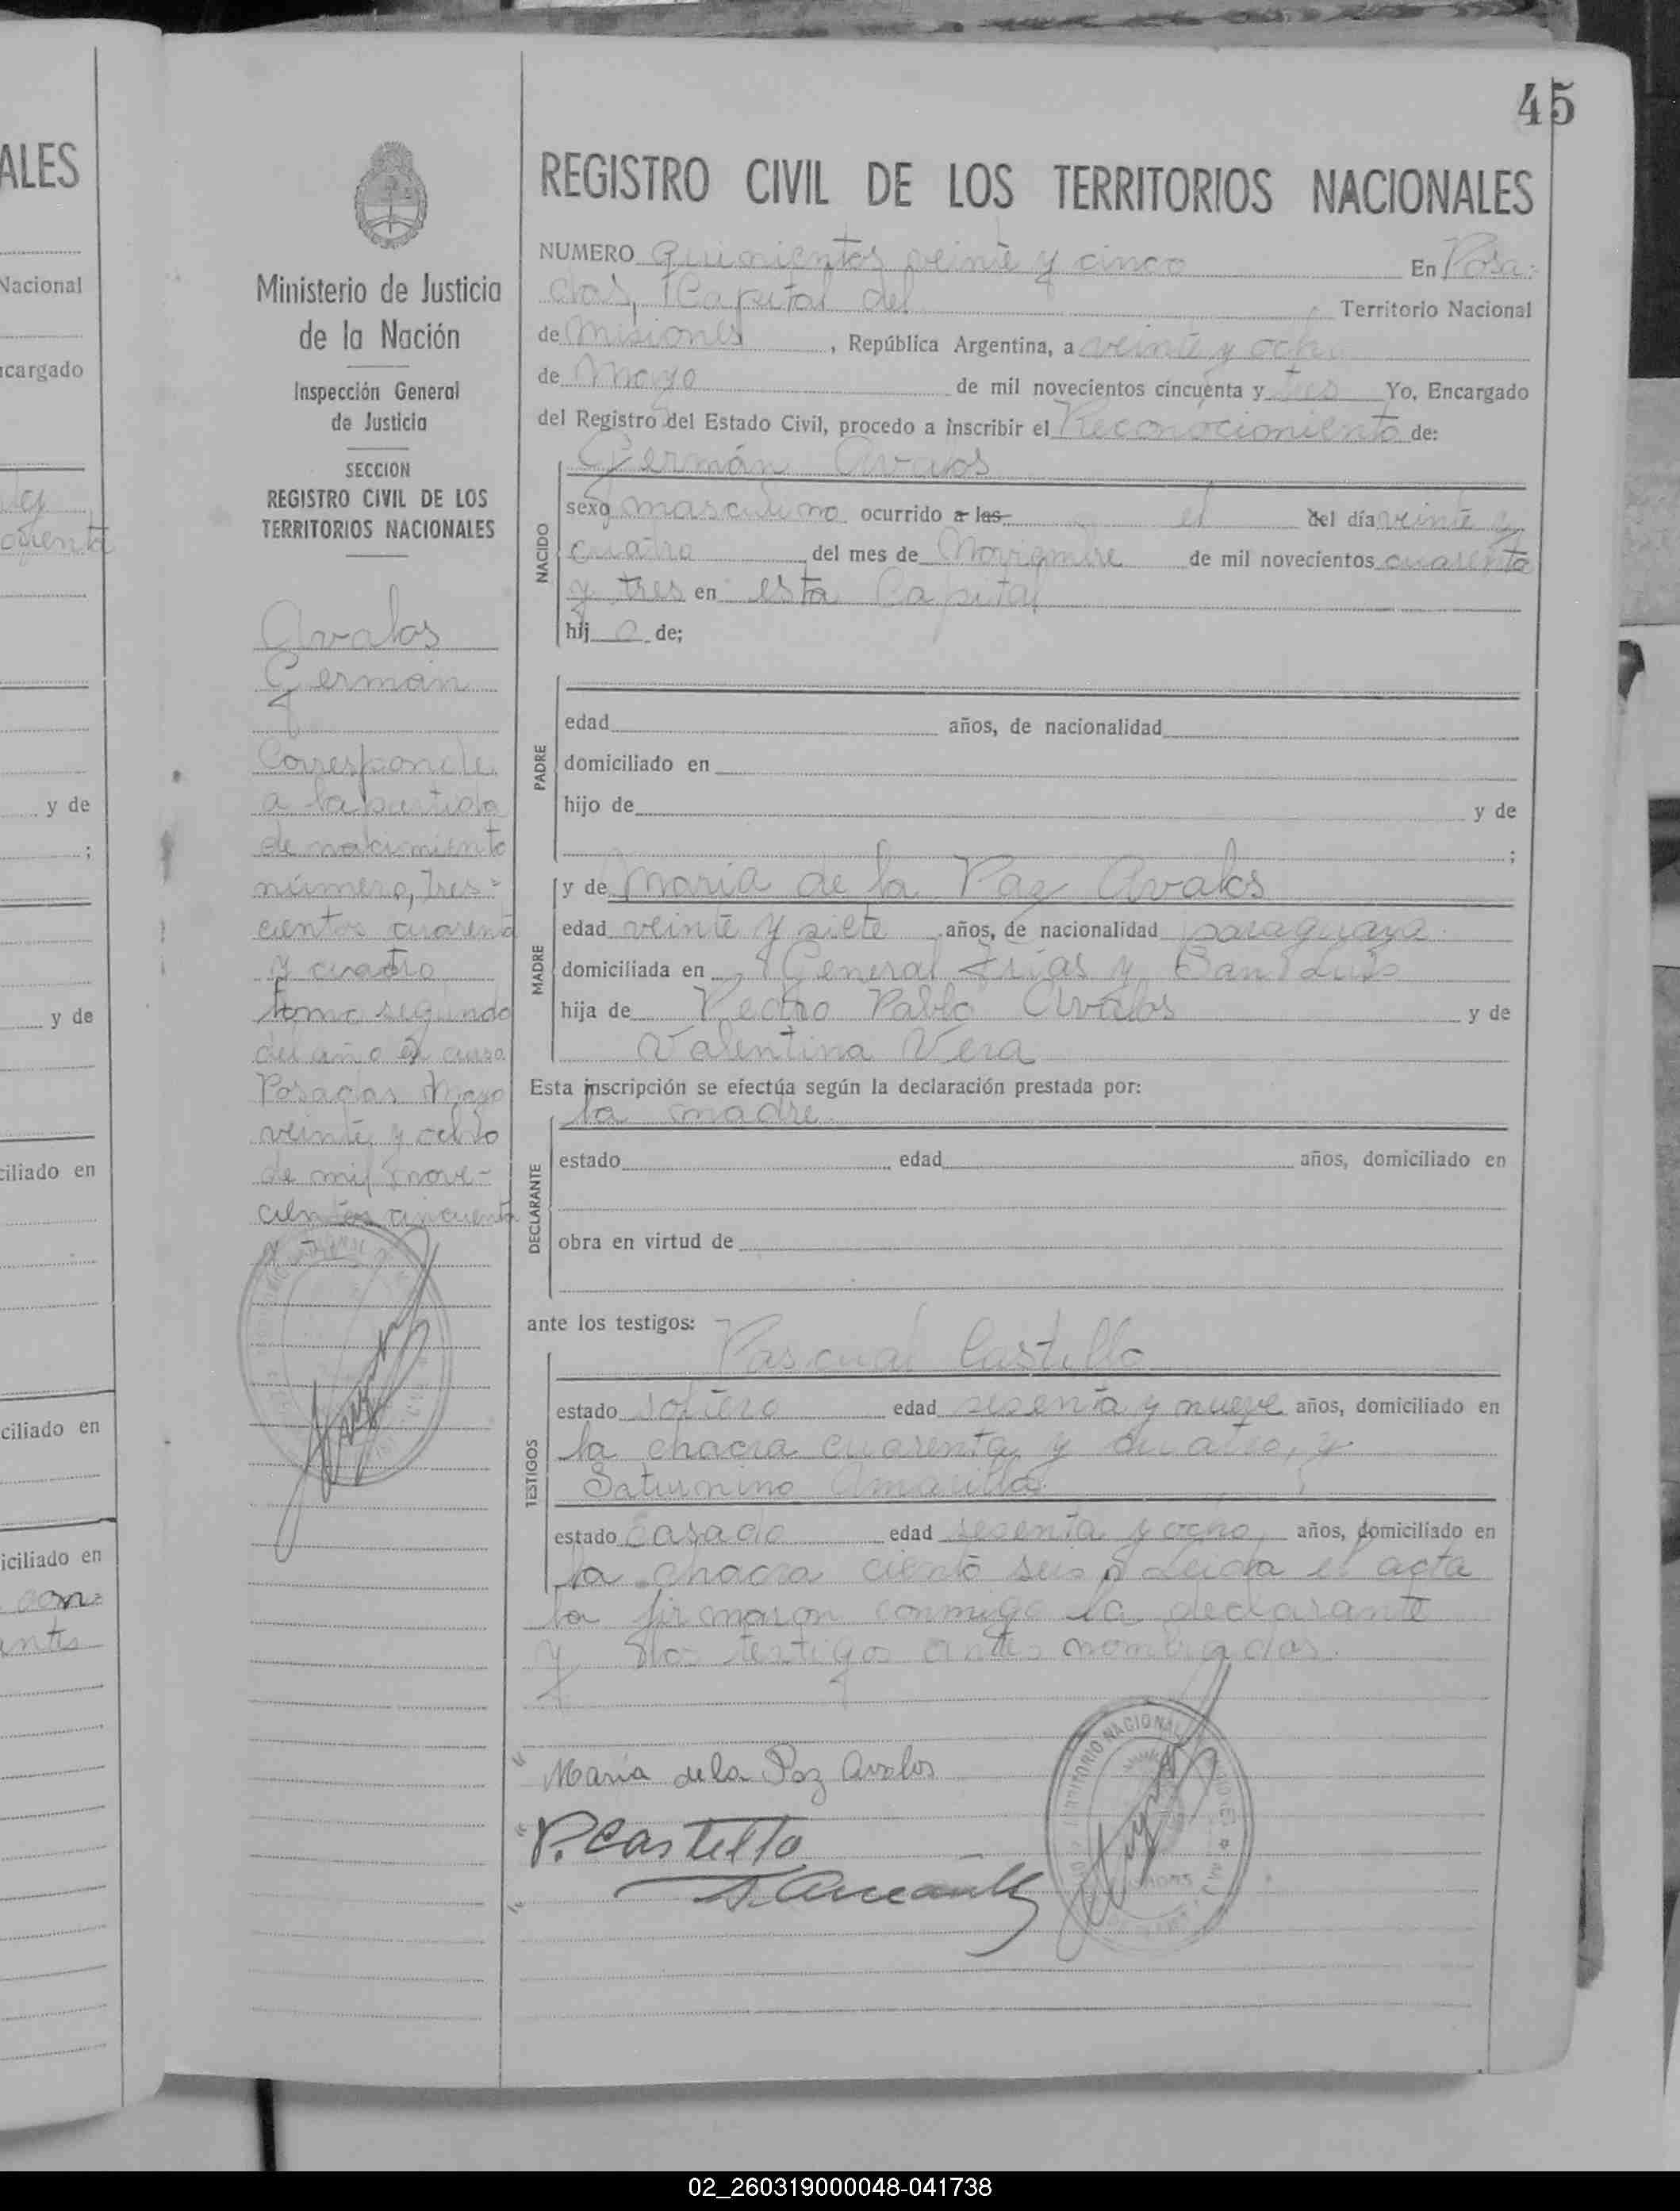 45
ALES
Nacional
cargado
y de
;
y de
ciliado en
ciliado en
iciliado en
Ministerio de Justicia
de la Nación
Inspección General
de Justicia
SECCION
REGISTRO CIVIL DE LOS
TERRITORIOS NACIONALES
Avalos
Germán
Corresponde
a la partida
de nacimiento
número, tres-
cientos cuarenta
y cuatro
tomo segundo
del año en curso
Posadas Mayo
veinte y ocho
de mil nove-
cientos cincuenta
y tres
REGISTRO CIVIL DE LOS TERRITORIOS NACIONALES
NUMERO Quinientos veinte y cinco En Posa-
das, Capital del Territorio Nacional
de Misiones, República Argentina, a veinte y ocho
de Mayo de mil novecientos cincuenta y tres Yo, Encargado
del Registro del Estado Civil, procedo a inscribir el Reconocimiento de:
Germán Avalos
NACIDO
sexo masculino ocurrido a las el del día veinte y
cuatro del mes de Noviembre de mil novecientos cuarenta
y tres en esta Capital
hij o de;
PADRE
edad años, de nacionalidad
domiciliado en
hijo de y de
;
MADRE
y de Maria de la Paz Avalos
edad veinte y siete años, de nacionalidad paraguaya
domiciliada en General Frias y San Luis
hija de Pedro Pablo Avalos y de
Valentina Vera
Esta inscripción se efectúa según la declaración prestada por:
la madre
DECLARANTE
estado edad años, domiciliado en
obra en virtud de
ante los testigos:
Pascual Castillo
TESTIGOS
estado soltero edad sesenta y nueve años, domiciliado en
la chacra cuarenta y cuatro, y
Saturnino Amarilla
estado casado edad sesenta y ocho años, domiciliado en
la chacra ciento seis Leida el acta
la firmaron conmigo la declarante
y los testigos antes nombrados.
Maria de la Paz Avalos
P. Castillo
TERRITORIO NACIONAL
02_260319000048-041738